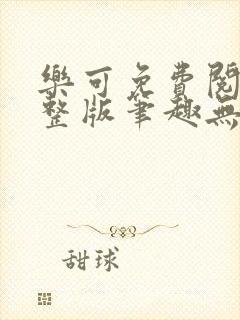 樂可免費閱
整版筆趣無
甜球